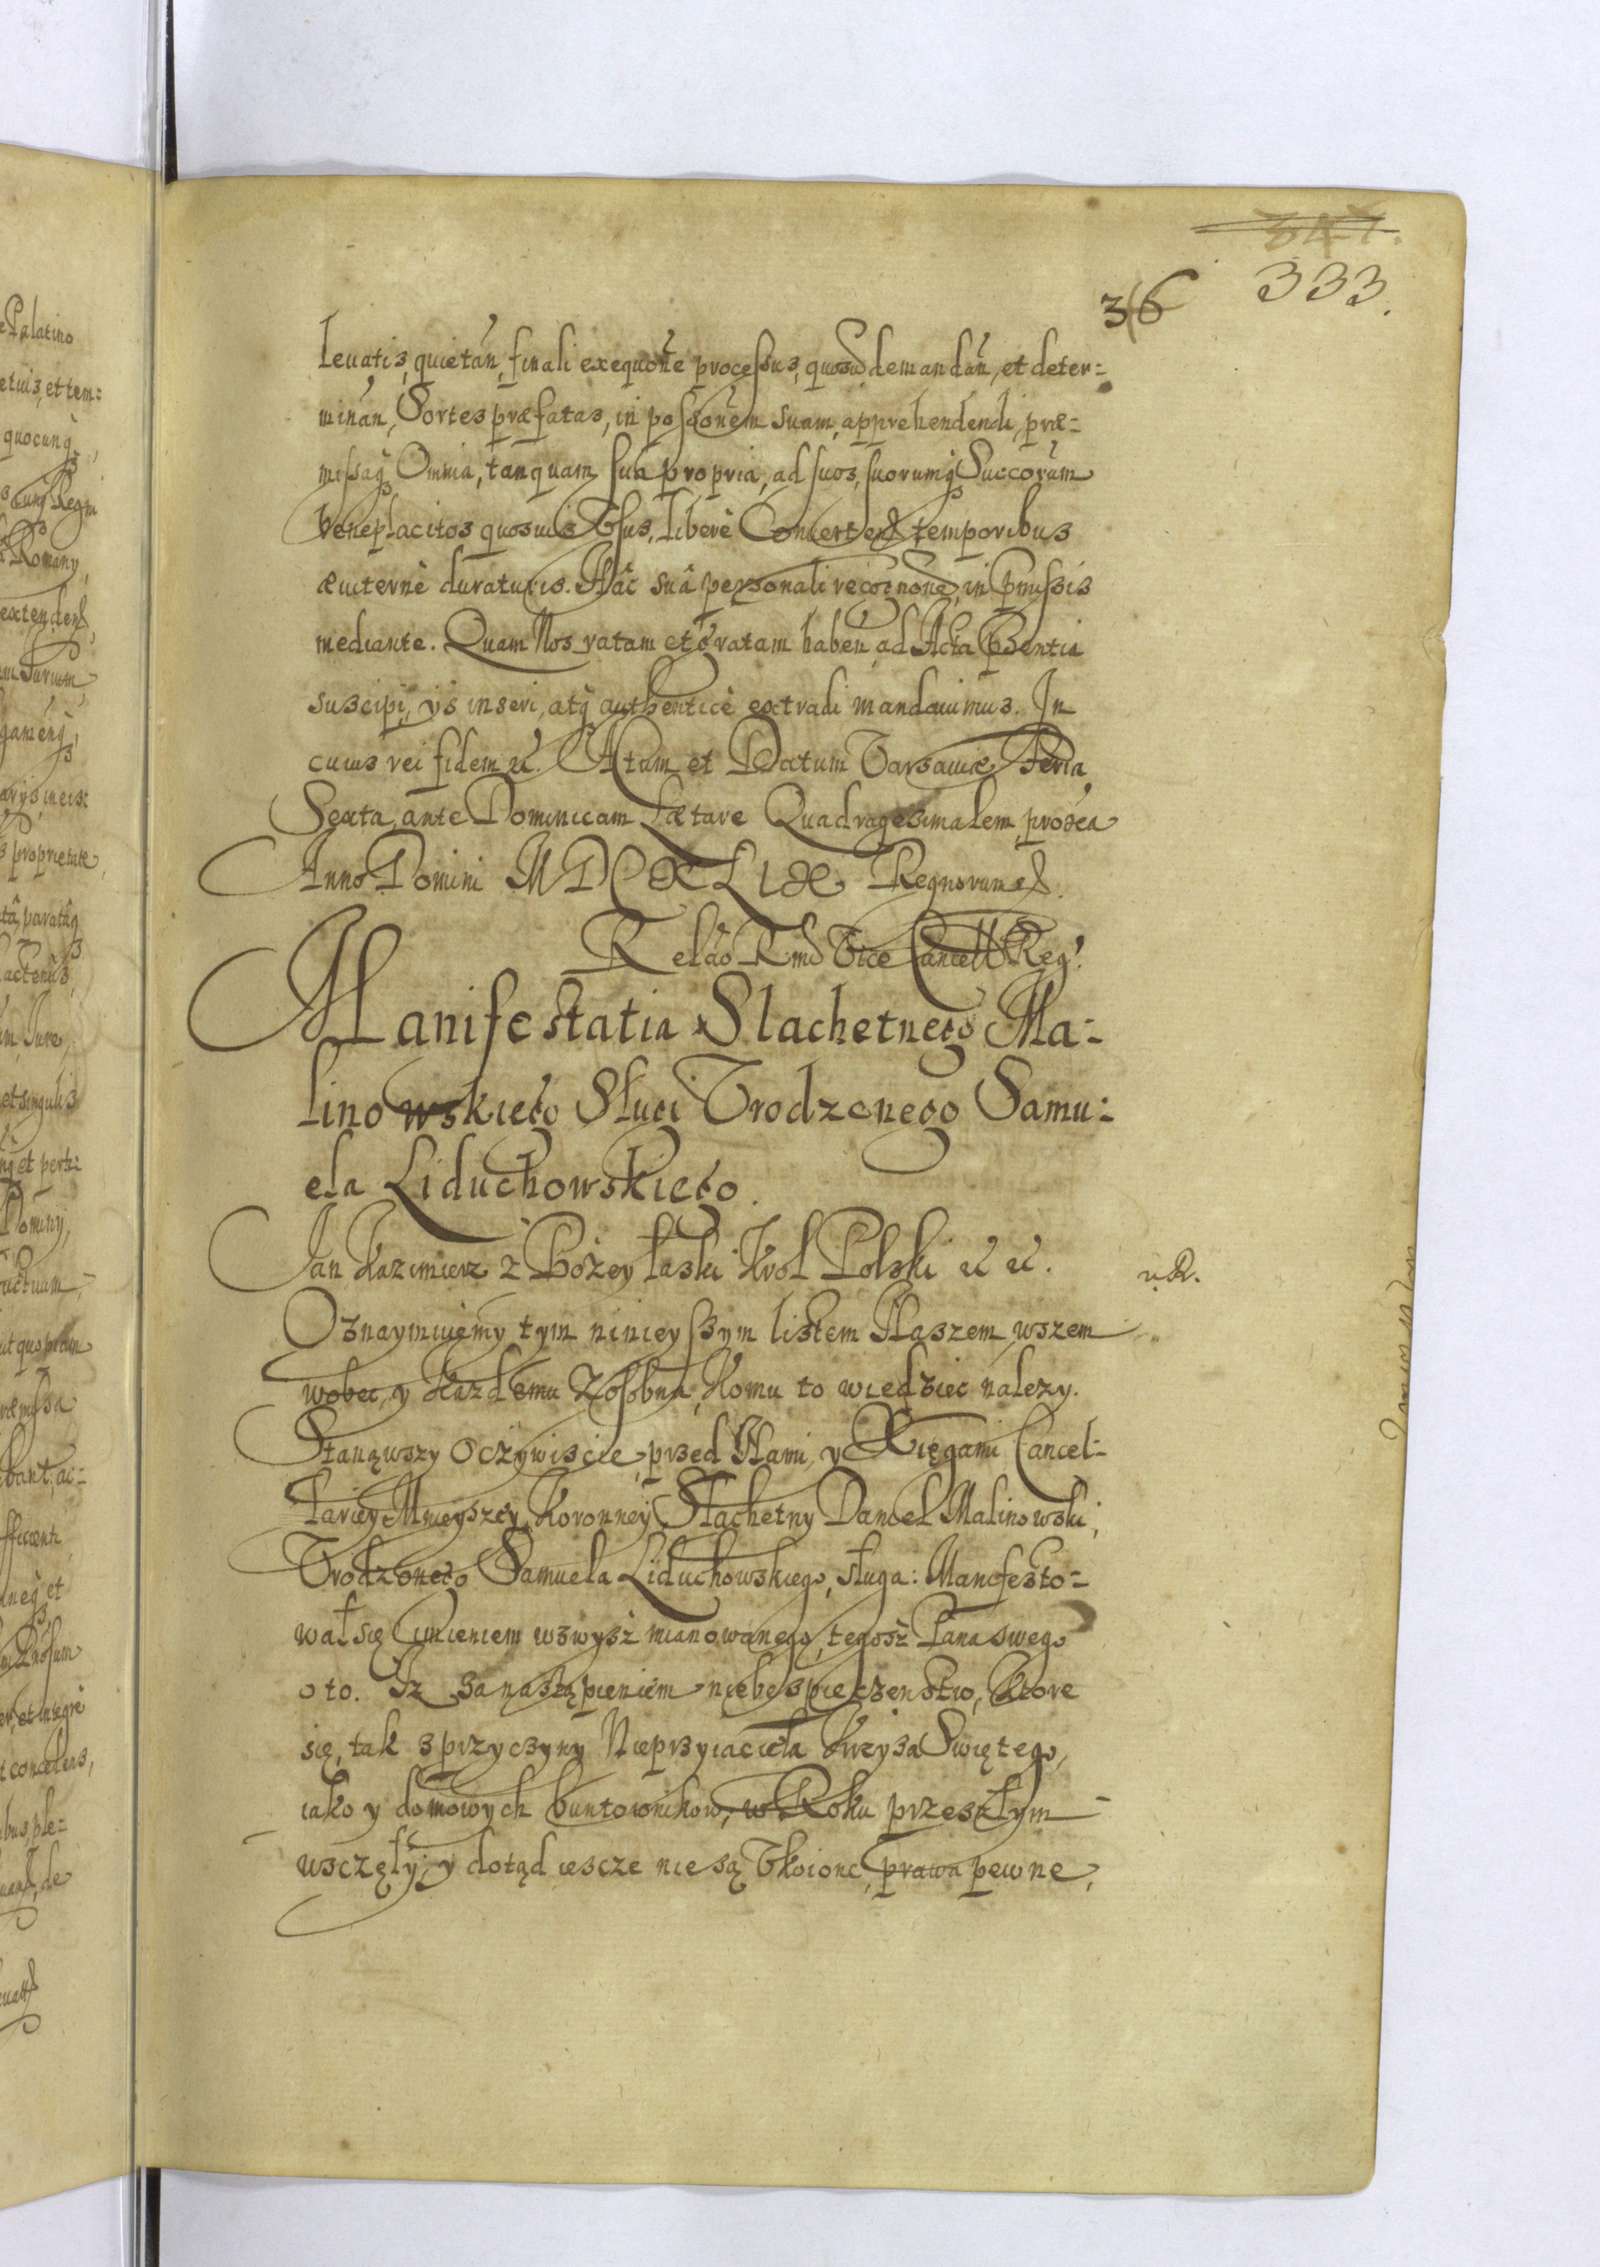 347.
333.
316
levatis, quietãn, finali exequõne processus, quosvis demandãn, et deter-
minãn, Sortes præfatas, in possonem suam, apprehendendi, præ-
missaq Omnia, tanquam sua propria, ad suos, suorumq Succorum
beneplacitos quosuis Vsus, liberè Conuertend temporibus
æuiternè duraturis. Hâc suâ personali recognone, in pmissis
mediante. Quam Nos ratam et gratam haben, ad Acta psentia
suscipi, ijs inseri, atq authenticè extradi mandauimus. In
cuius rei fidem &. Actum et Datum Varsauiæ Feria
Sexta, ante Dominicam Lætare Quadragesimalem, proxa
Anno Domini MDCXLIX Regnorum &.
Relão Rmd Vice Cancell Reg.
Manifestatia Slachetnego Ma-
linowskiego Sługi Vrodzonego Samu-
ela Liduchowskiego.
Jan Kazimierz z Bożey łaski Krol Polski & &.
Oznaymuięmy tym ninieyszym listem Naszem wszem
wobec, y każdemu zosobna, Komu to wiedziec nalezy.
Stanąwszy Oczywiscie, przed Nami, y Xięgami Cancel-
lariey Mnieyszey Koronney Slachetny Daniel Malinowski,
Vrodzonego Samuela Liduchowskiego, sługa: Manifesto-
wał się Jmieniem wzwysz mianowanego, tegosz Pana swego
o to. Iz za nastąpieniem niebespieczenstw, Ktore
się, tak z przyczyny Nieprzyiaciela Krzyża Swiętego,
iako y domowych buntownikow, w Roku przeszłym
wszczęły, y dotąd iescze nie są Vkoione, prawa pewne,